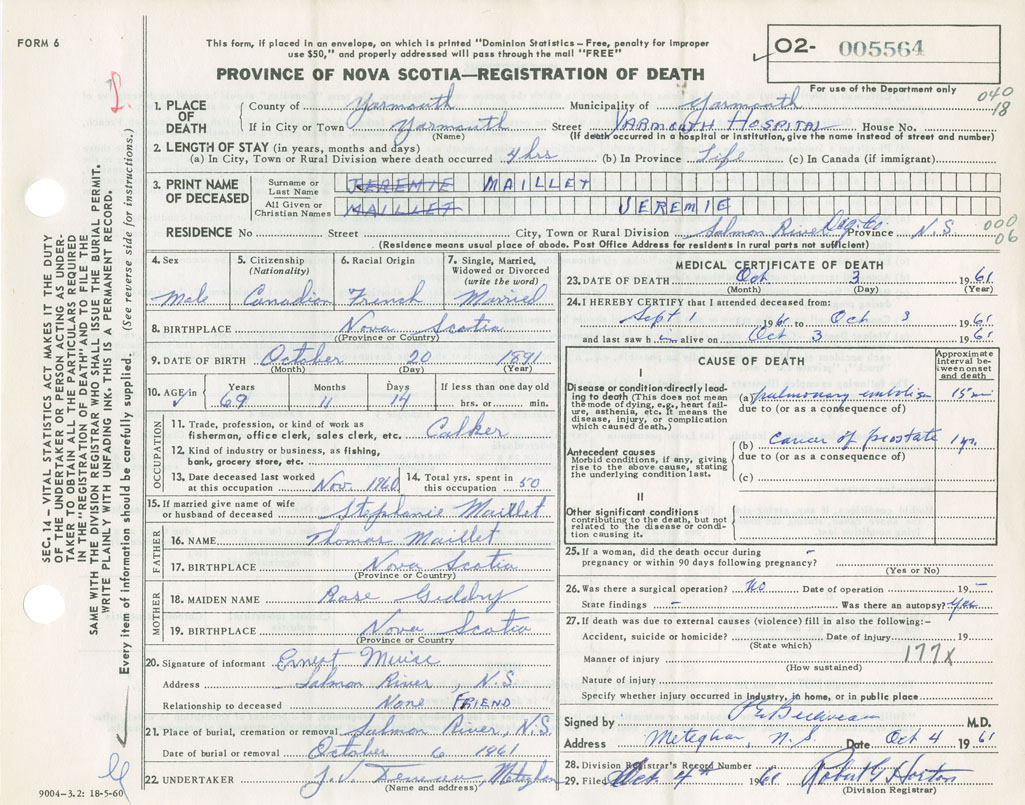 FORM 6
This form, if placed in an envelope, on which is printed "Dominion Statistics—Free, penalty for improper
use $50," and properly addressed will pass through the mail "FREE"
O2- 005564
PROVINCE OF NOVA SCOTIA—REGISTRATION OF DEATH
For use of the Department only
040
18
1. PLACE OF DEATH
County of Yarmouth Municipality of Yarmouth
If in City or Town Yarmouth Street YARMOUTH HOSPITAL House No.
(If death occurred in a hospital or institution, give the name instead of street and number)
2. LENGTH OF STAY (in years, months and days)
(a) In City, Town or Rural Division where death occurred 4 hrs (b) In Province Life (c) In Canada (if immigrant)
3. PRINT NAME OF DECEASED
Surname or Last Name JEREMIE MAILLET
All Given or Christian Names MAILLET JEREMIE
RESIDENCE No Street City, Town or Rural Division Salmon River Dig. Co Province N.S
000
06
(Residence means usual place of abode. Post Office Address for residents in rural parts not sufficient)
4. Sex
Male
5. Citizenship
(Nationality)
Canadian
6. Racial Origin
French
7. Single, Married,
Widowed or Divorced
(write the word)
Married
8. BIRTHPLACE Nova Scotia
(Province or Country)
9. DATE OF BIRTH October 20 1891
(Month) (Day) (Year)
10. AGE in
Years Months Days If less than one day old
69 11 14 hrs. or min.
OCCUPATION
11. Trade, profession, or kind of work as
fisherman, office clerk, sales clerk, etc. Calker
12. Kind of industry or business, as fishing,
bank, grocery store, etc.
13. Date deceased last worked
at this occupation Nov. 1960
14. Total yrs. spent in
this occupation 50
15. If married give name of wife
or husband of deceased Stephanie Maillet
FATHER
16. NAME Thomas Maillet
17. BIRTHPLACE Nova Scotia
(Province or Country)
MOTHER
18. MAIDEN NAME Rose
19. BIRTHPLACE Nova Scotia
(Province or Country)
20. Signature of informant Ernest Muise
Address Salmon River, N.S
Relationship to deceased None FRIEND
21. Place of burial, cremation or removal Salmon River, N.S
Date of burial or removal October 6 1961
22. UNDERTAKER J.V. Meteghan
(Name and address)
MEDICAL CERTIFICATE OF DEATH
23. DATE OF DEATH Oct 3 1961
(Month) (Day) (Year)
24. I HEREBY CERTIFY that I attended deceased from:
Sept 1 1961 to Oct 3 1961
and last saw him alive on Oct 3 1961
CAUSE OF DEATH
Approximate
interval be-
tween onset
and death
I
Disease or condition directly lead-
ing to death (This does not mean
the mode of dying, e.g., heart fail-
ure, asthenia, etc. It means the
disease, injury, or complication
which caused death.)
(a) pulmonary embolism 15 mi
due to (or as a consequence of)
Antecedent causes
Morbid conditions, if any, giving
rise to the above cause, stating
the underlying condition last.
(b) cancer of prostate 1 yr.
due to (or as a consequence of)
(c)
II
Other significant conditions
contributing to the death, but not
related to the disease or condi-
tion causing it.
25. If a woman, did the death occur during
pregnancy or within 90 days following pregnancy? -
(Yes or No)
26. Was there a surgical operation? No Date of operation - 19 -
State findings - Was there an autopsy? Yes
27. If death was due to external causes (violence) fill in also the following:-
Accident, suicide or homicide? Date of injury 19
(State which)
Manner of injury 177X
(How sustained)
Nature of injury
Specify whether injury occurred in industry, in home, or in public place
Signed by M.D.
Address Meteghan, N.S Date Oct 4 1961
28. Division Registrar's Record Number
29. Filed Oct 4th 1961 Robert G Horton
(Division Registrar)
SEC. 14 — VITAL STATISTICS ACT MAKES IT THE DUTY
OF THE UNDERTAKER OR PERSON ACTING AS UNDER-
TAKER TO OBTAIN ALL THE PARTICULARS REQUIRED
IN THE "REGISTRATION OF DEATH" AND TO FILE THE
SAME WITH THE DIVISION REGISTRAR WHO SHALL ISSUE THE BURIAL PERMIT.
WRITE PLAINLY WITH UNFADING INK. THIS IS A PERMANENT RECORD.
Every item of information should be carefully supplied. (See reverse side for instructions.)
9004-3.2: 18-5-60